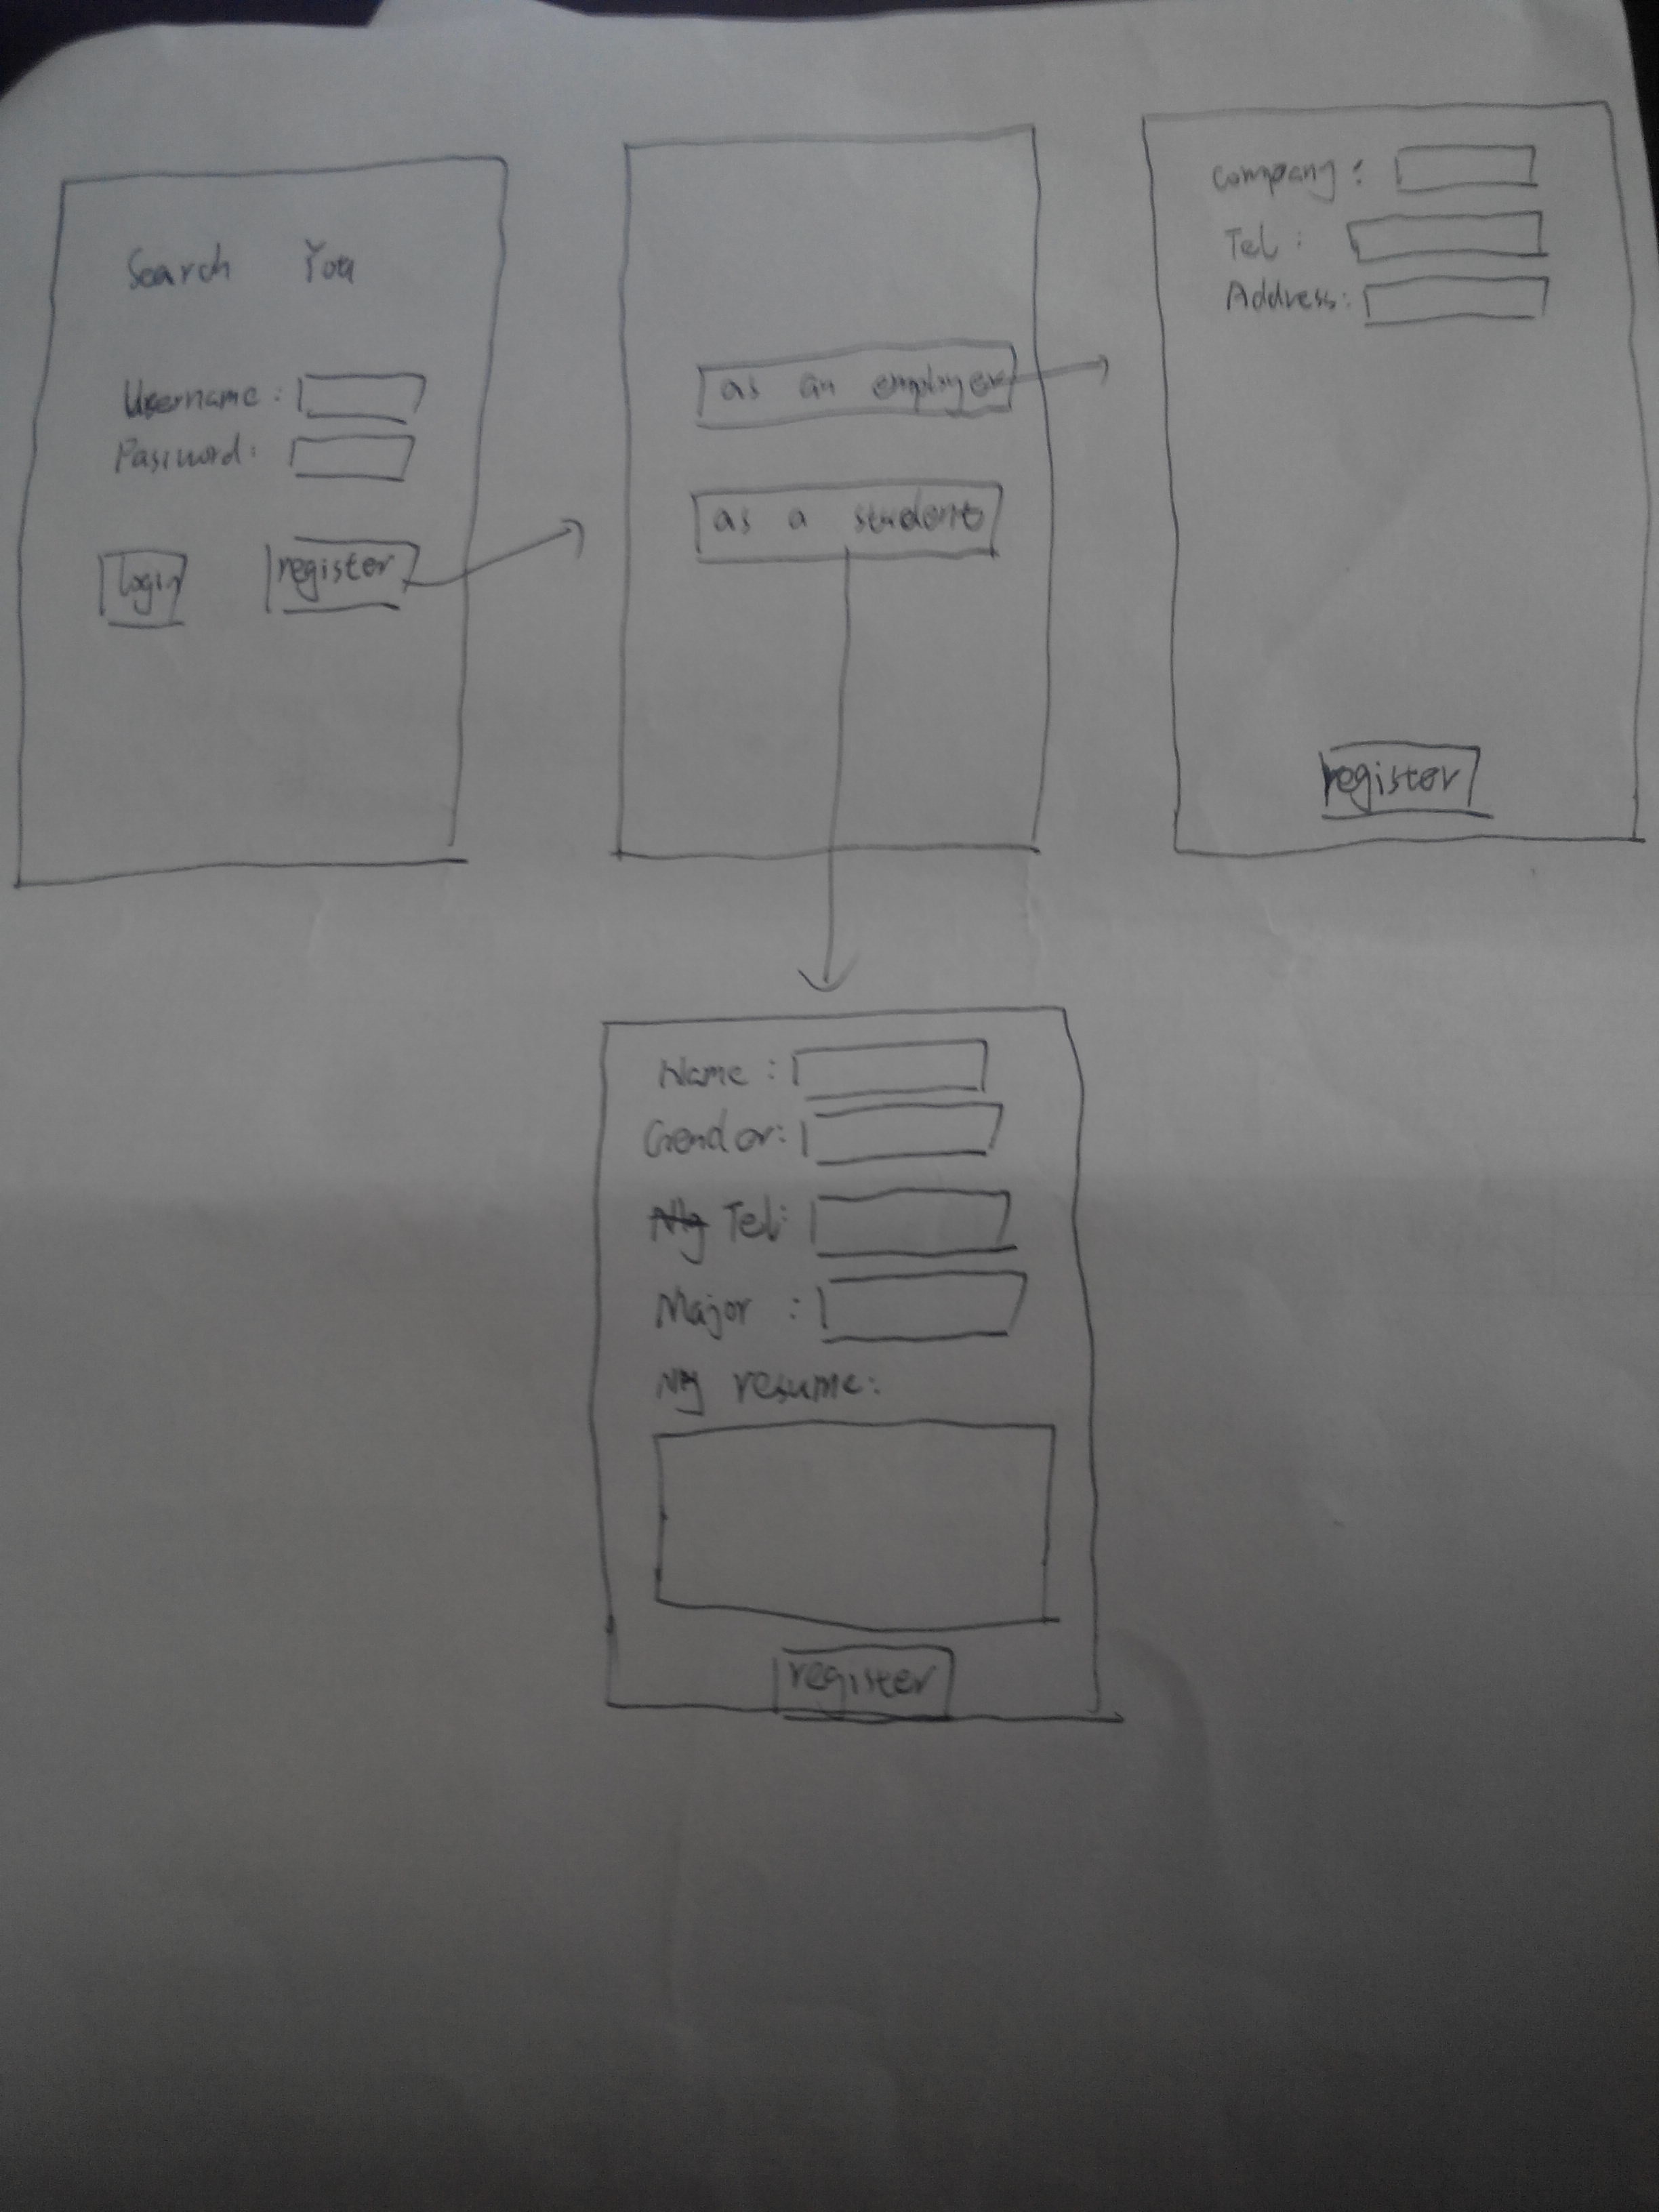 Search You
Username:
Password:
login register
as an employer
as a student
Company:
Tel:
Address:
register
Name:
Gender:
Tel:
Major:
My resume:
register